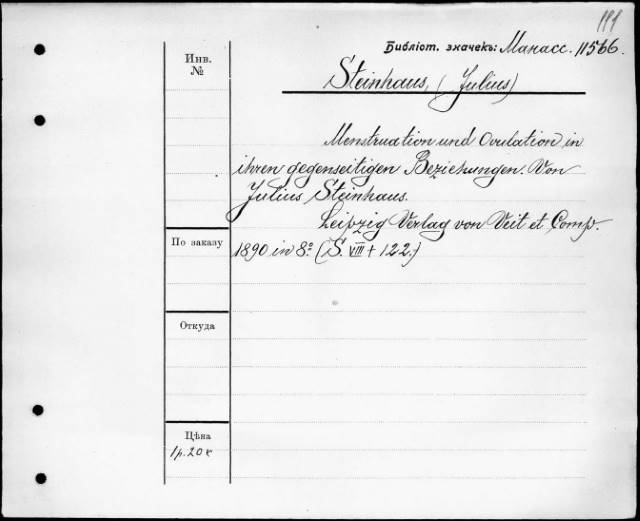 191
Библіот. значекъ: Манасс. 11566.
Инв.
№
Steinhaus, (Julius)
Menstruation und Ovulation in
ihren gegenseitigen Beziehungen. Von
Julius Steinhaus.
Leipzig Verlag von Veit et Comp.
По заказу
1890 in 8° (S. VIII + 122.)
Откуда
Цѣна
1 р. 20 к